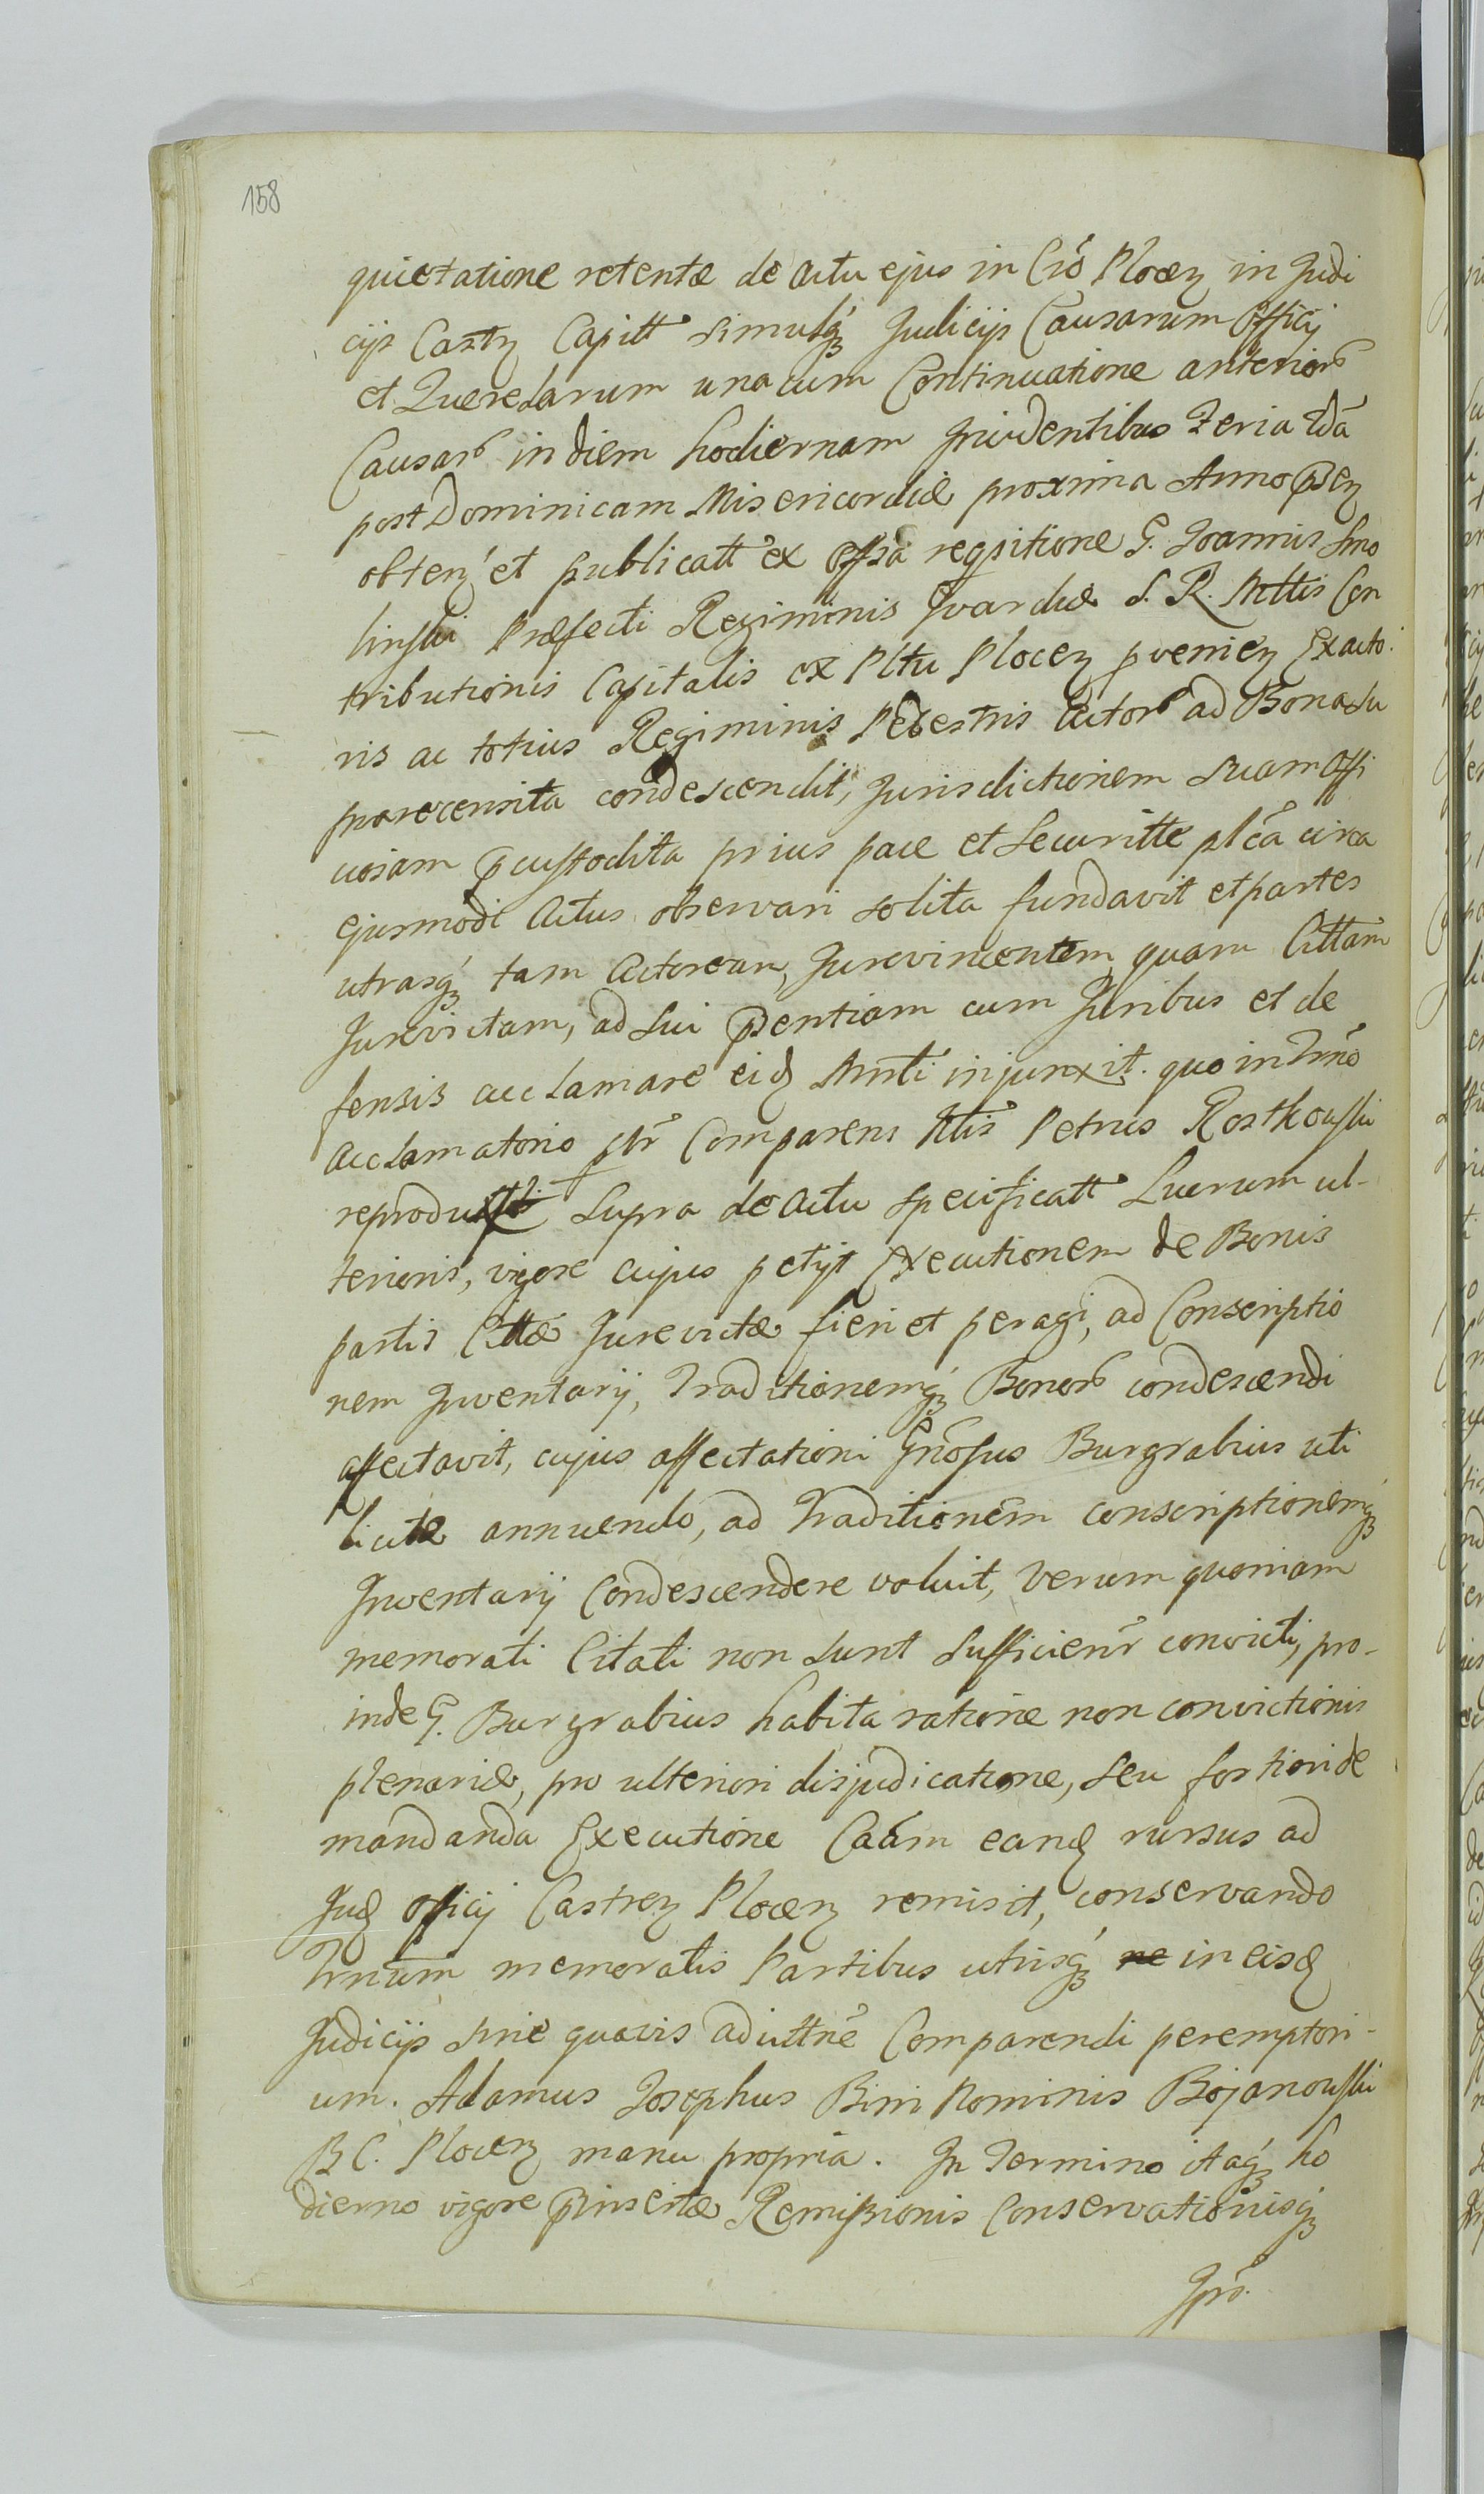 158
quietatione retentæ de actu ejus in Crō Plocen in Judi
cijs Castn Capitt simulq́ Judicijs Causarum Officij
et Querelarum una cum Continuatione anterior
Causar in diem hodiernam incidentibus Feria 2dā
post Dominicam Misericordiæ proxima Anno psen
obten et publicatt ex offsa reqsitione G. Joannis Smo
linski Præfecti Regiminis Gvardiæ S. R. Mttis Con
tributionis Capitalis ex Pltu Plocen pvenien Exacto
ris ac totius Regiminis Pedestris Actor ad Bona su
prarecensita condescendit, Jurisdictionem suam offi
ciosam pcustodita prius pace et Securitte plcā circa
ejusmodi Actus observari solita fundavit et partes
utrasq́ tam Actoream, Jurevincentem quam Cittam
Jurevictam, ad sui psentiam cum Juribus et de
fensis acclamare eid Mnti injunxit. quo in Trnō
acclamatorio ptr Comparens Ntis Petrus Rostkowski
reproduxit supra de actu specificatt Lucrum ul-
terioris, vigore cujus petijt Executionem de Bonis
partis Cittæ Jurevictæ fieri et peragi, ad Conscriptio
nem Inventarij, Traditionemq́ Bonor condescendi
affectavit, cujus affectationi Gnosus Burgrabius uti
licitæ annuendo, ad Traditionem conscriptionemq́
Inventarij Condescendere voluit, Verum quoniam
memorati Citati non sunt sufficienr convicti, pro-
inde G. Burgrabius habita ratione non convictionis
plenariæ, pro ulteriori disjudicatione, seu fortiori de
mandanda Executione Caām eand rursus ad
Jud officij Castren Plocen remisit, conservando
Trnum memoratis Partibus utrisq́ ne in eisd
Judicijs sine quavis aduttnē Comparendi peremptori-
um. Adamus Josephus Bini Nominis Bojanowski
B C. Plocen manu propria. In Termino itaq́ ho
dierno vigore pinsertæ Remissionis Conservationisq́
Jprō.